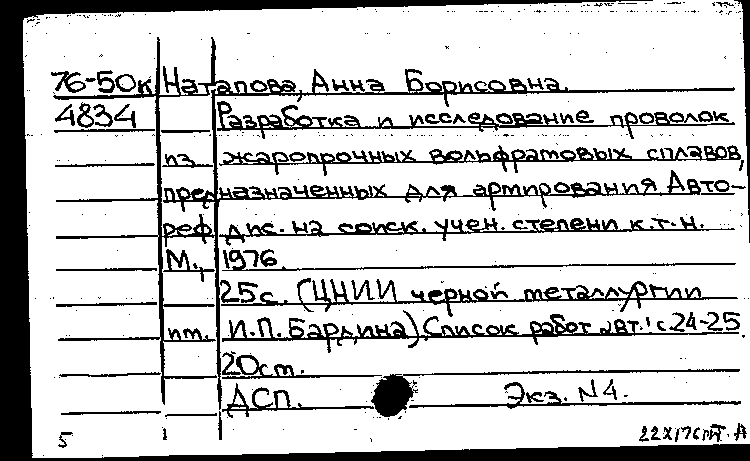 76-50к Натапова, Анна Борисовна.
4834 Разработка и исследование проволок
из жаропрочных вольфрамовых сплавов,
предназначенных для армирования Авто-
реф. дис. на соиск. учен. степени к.т.н.
М., 1976.
25с. (ЦНИИ черной металлургии
им. И.П. Бардина). Список работ авт.: с 24-25.
20см.
ДСП. Экз. N4.
5 1